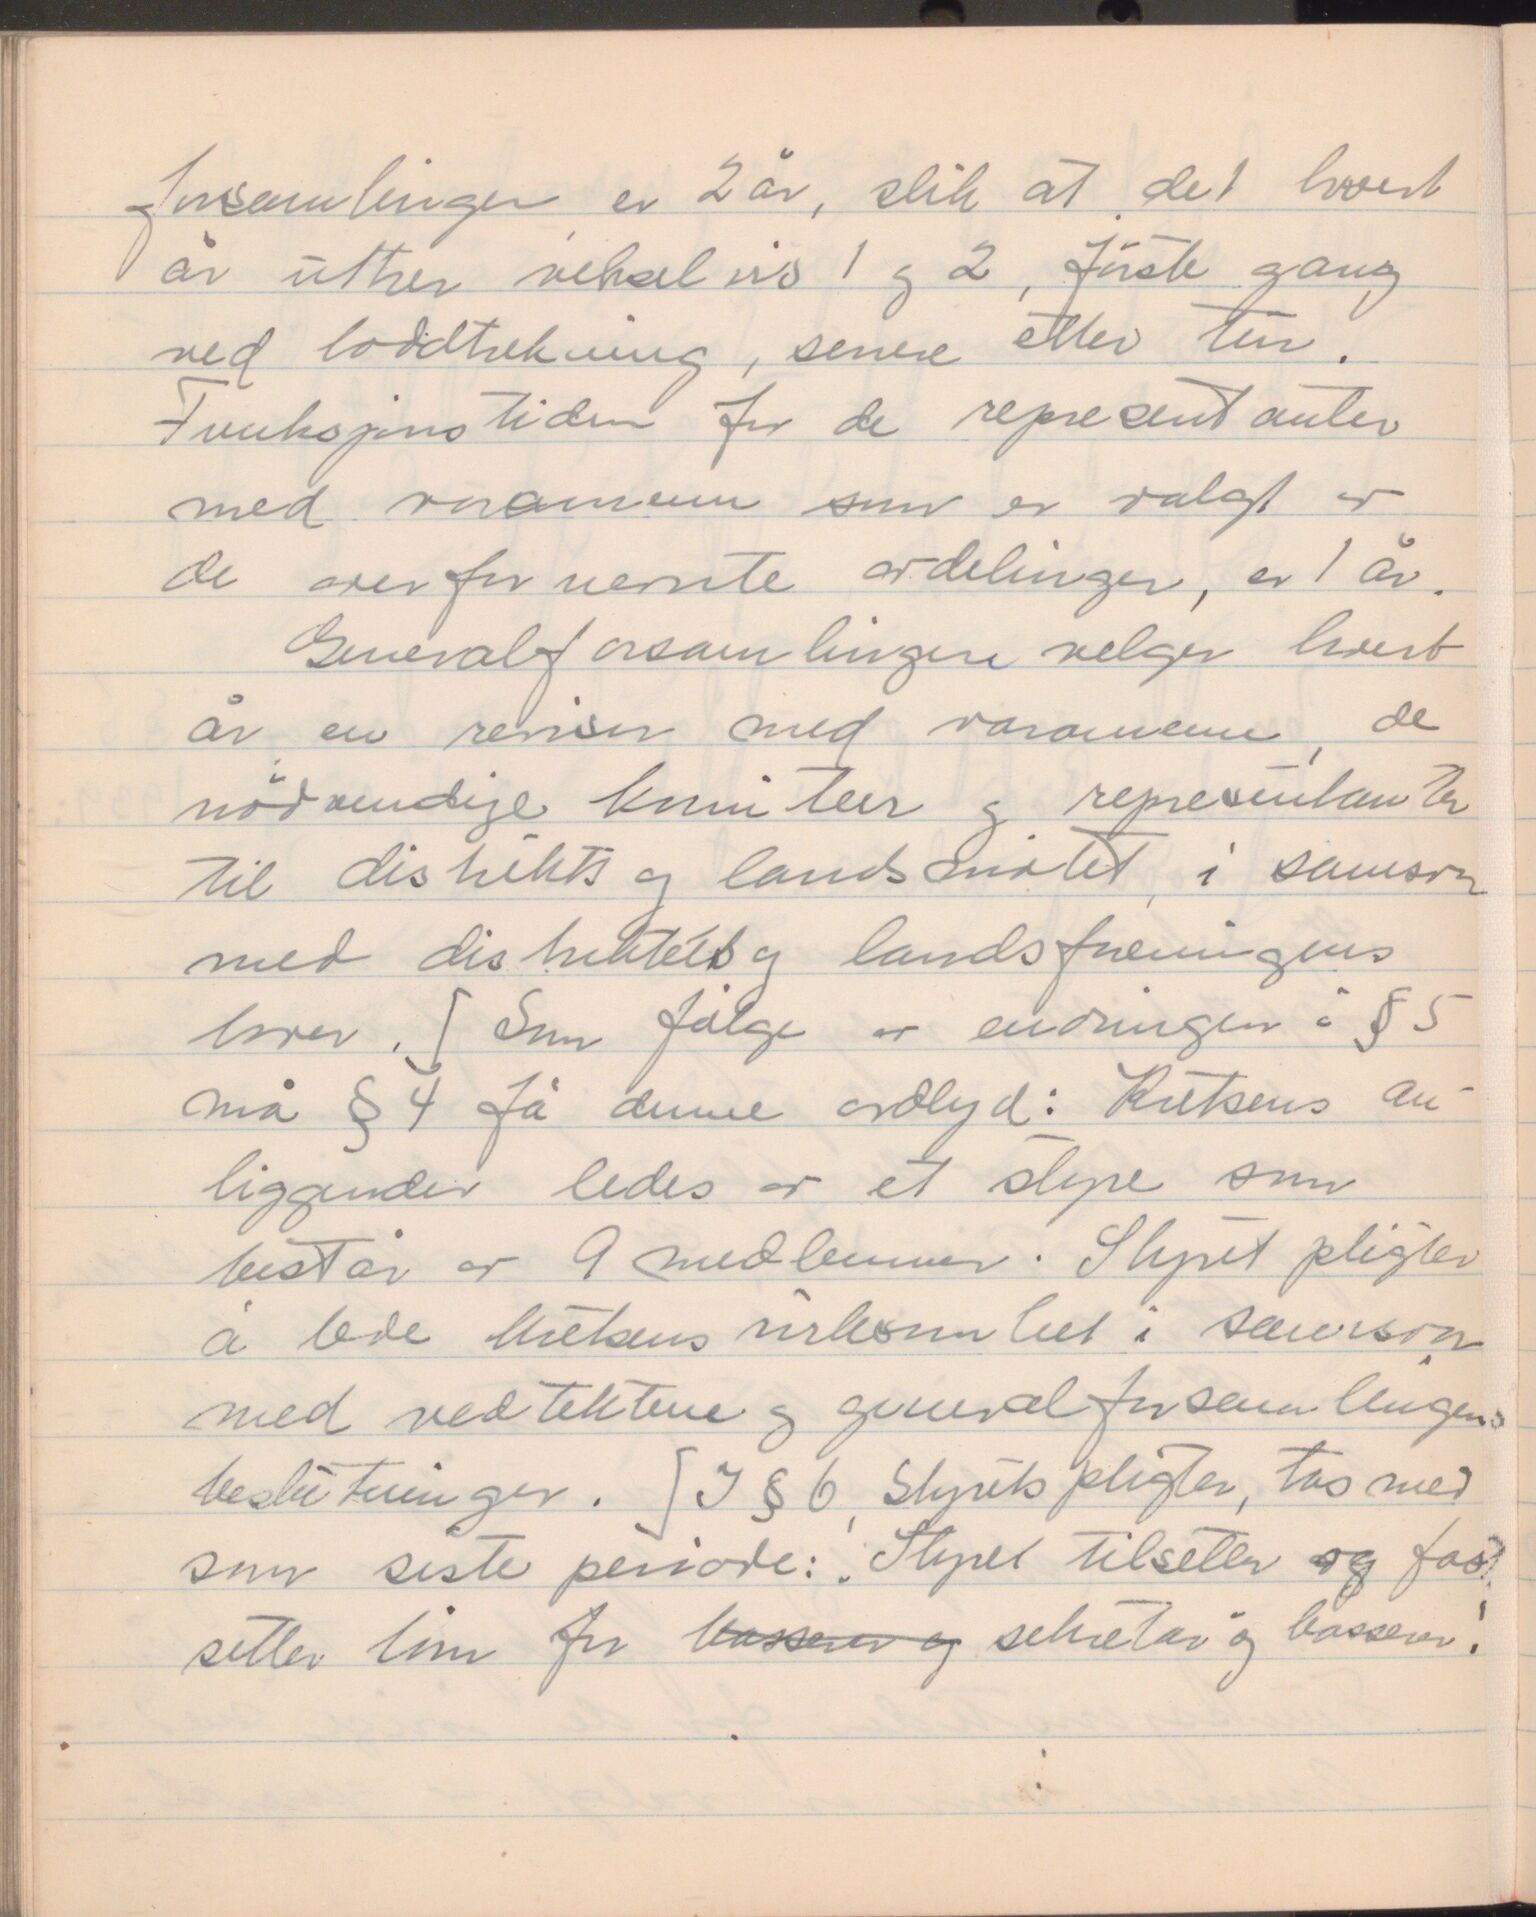 forsamlingen er 2 år, slik at det hvert
år uttrer vekselvis 1 og 2, förste gang
ved loddtrekning, senere etter tur.
Funksjonstiden for de representanter
med varamenn som er valgt av
de ovenfor nevnte avdelinger, er 1 år.
Generalforsamlingen velger hvert
år en revisor med varamenn, de
nödvendige komiteer og representanter
til distrikts og landsmötet, i samsvar
med distriktets og landsforeningens
lover. [ Som fölge av endringen i § 5
må § 4 få denne ordlyd: Kretsens an-
liggender ledes av et styre som
består av 9 medlemmer. Styret pligter
å lede kretsens virksomhet i samsvar
med vedtektene og generalforsamlingens
beslutninger. [ I § 6, Styrets pligter, tas med
som siste periode: "Styret tilsetter og fast
setter lönn for kasserer og sekretær og kasserer."